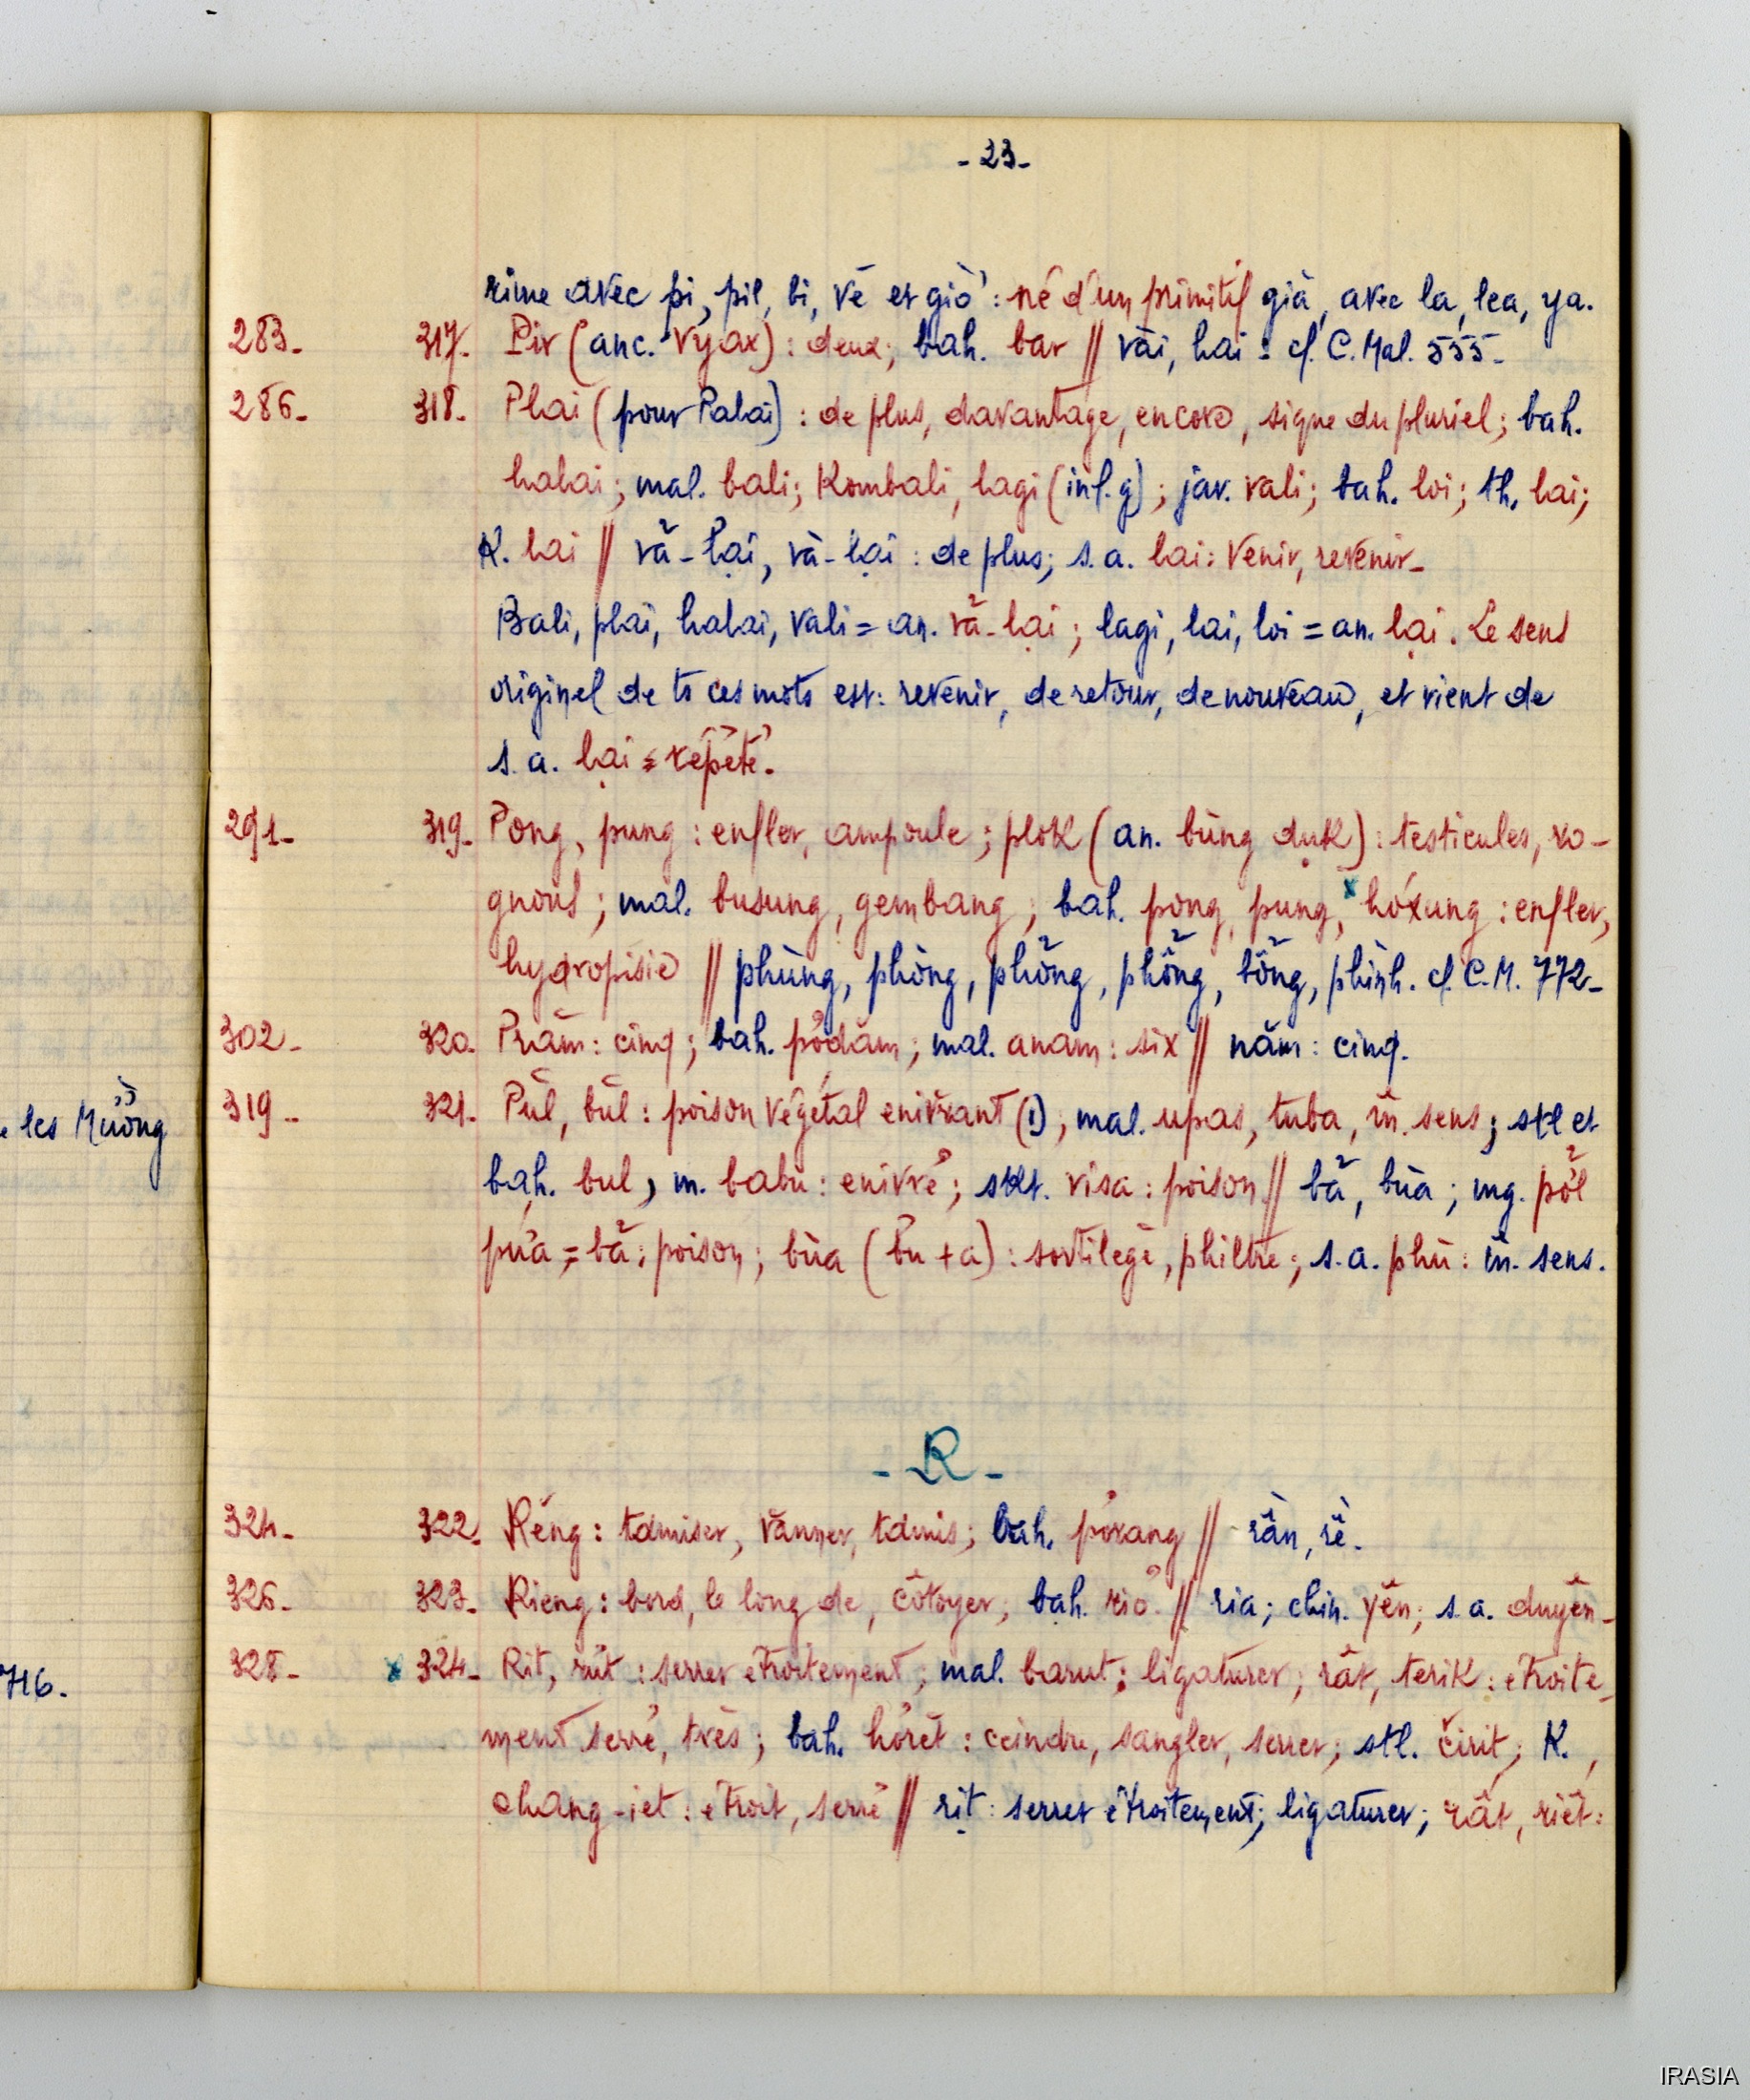 - 23 -
rime avec pi, pil, bi, vê et giò : né d'un primitif già, avec la, lea, ya.
283- 317- Pir (anc. Vyar) : deux; bah. bar // vài, hai : cf. C. Mal. 555-
286- 318- Phai (pour Palai) : de plus, davantage, encore, signe du pluriel; bah.
halai; mal. bali; Kombali, lagi (inf. g); jav. vali; bah. loi; th. lai;
K. lai // vả-lại, và-lại : de plus; s. a. lai : Venir, revenir-
Bali, plai, halai, vali = an. vả-lại; lagi, lai, loi = an. lại. Le sens
originel de ts ces mots est : revenir, de retour, de nouveau, et vient de
s. a. lại = répété.
291- 319- Pong, pung : enfler, ampoule; plok (an. bùng dụk) : testicules, ro-
gnons; mal. busung, gembang; bah. pong, pung, x hóxung : enfler,
hydropisie // phùng, phòng, phỏng, phổng, bổng, phình. cf. C.M. 772-
302- 320- Prăm : cinq; bah. pơdăm; mal. anam : six // năm : cinq.
e les Mường
319- 321- Pŭl, bŭl : poison végétal enivrant (1); mal. upas, tuba, m̂. sens; stl et
bah. bul, m. babu : enivré; skt. visa : poison // bả, bùa; mg. pổl
púa = bả : poison; bùa (bu + a) : sortilège, philtre; s. a. phù : m̂. sens.
- R -
324- 322- Rĕng : tamiser, vanner, tamis; bah. pơrang // rần, rề.
326- 323- Rieng : bord, le long de, côtoyer; bah. riơ // ria; chin. yên; s. a. duyên-
746.
328- x 324- Rit, rŭt : serrer étroitement; mal. barut : ligaturer; rât, terik : étroite-
ment serré, très; bah. hơrĕt : ceindre, sangler, serrer; stl. čirit; K.
chang-iet : étroit, serré // rịt : serrer étroitement; ligaturer; rất, riết :
IRASIA